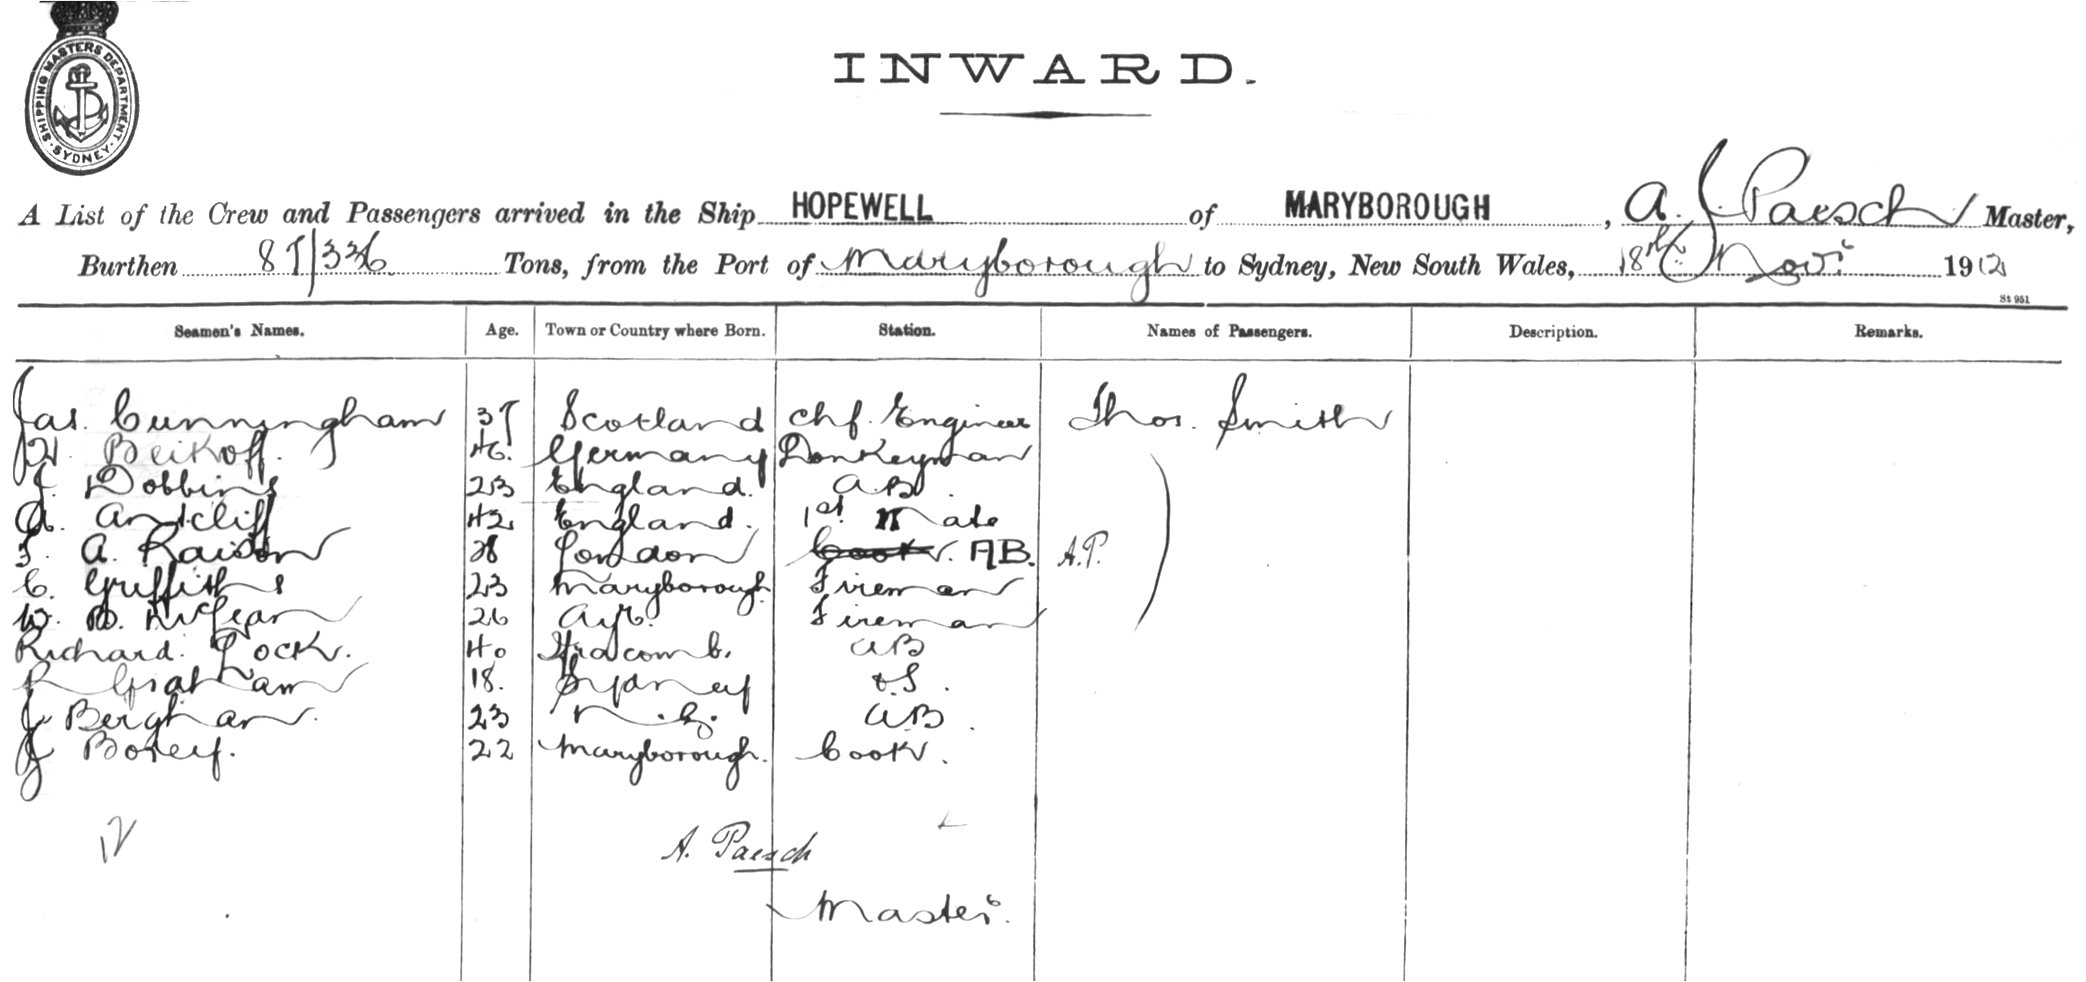 SHIPPING MASTERS DEPARTMENT
SYDNEY
INWARD.
A List of the Crew and Passengers arrived in the Ship HOPEWELL of MARYBOROUGH, A. J. Paesch Master,
Burthen 87/336 Tons, from the Port of Maryborough to Sydney, New South Wales, 18th Novr 1912
St 951
Seamen's Names. Age. Town or Country where Born. Station. Names of Passengers. Description. Remarks.
Jas. Cunningham 37 Scotland Chf. Engineer Thos. Smith
Beikoff. 46. Germany Donkeyman
J. Dobbins 23 England. AB.
A. Antcliff 42 England. 1st Mate
A. Raison 28 London Cook. AB. A.P.
C. Griffiths 23 Maryborough Fireman
W. 26 Ayr. Fireman
Richard. Lock. 40 Ilfracomb. AB
R Graham 18. Sydney O.S.
J Berghan. 23 N.Z. AB.
J Borey. 22 Maryborough. Cook.
12
A. Paesch
Master.